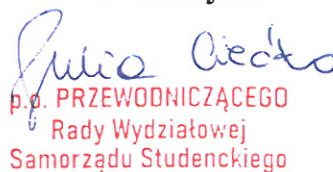 Julia
p.o. PRZEWODNICZĄCEGO
Rady Wydziałowej
Samorządu Studenckiego